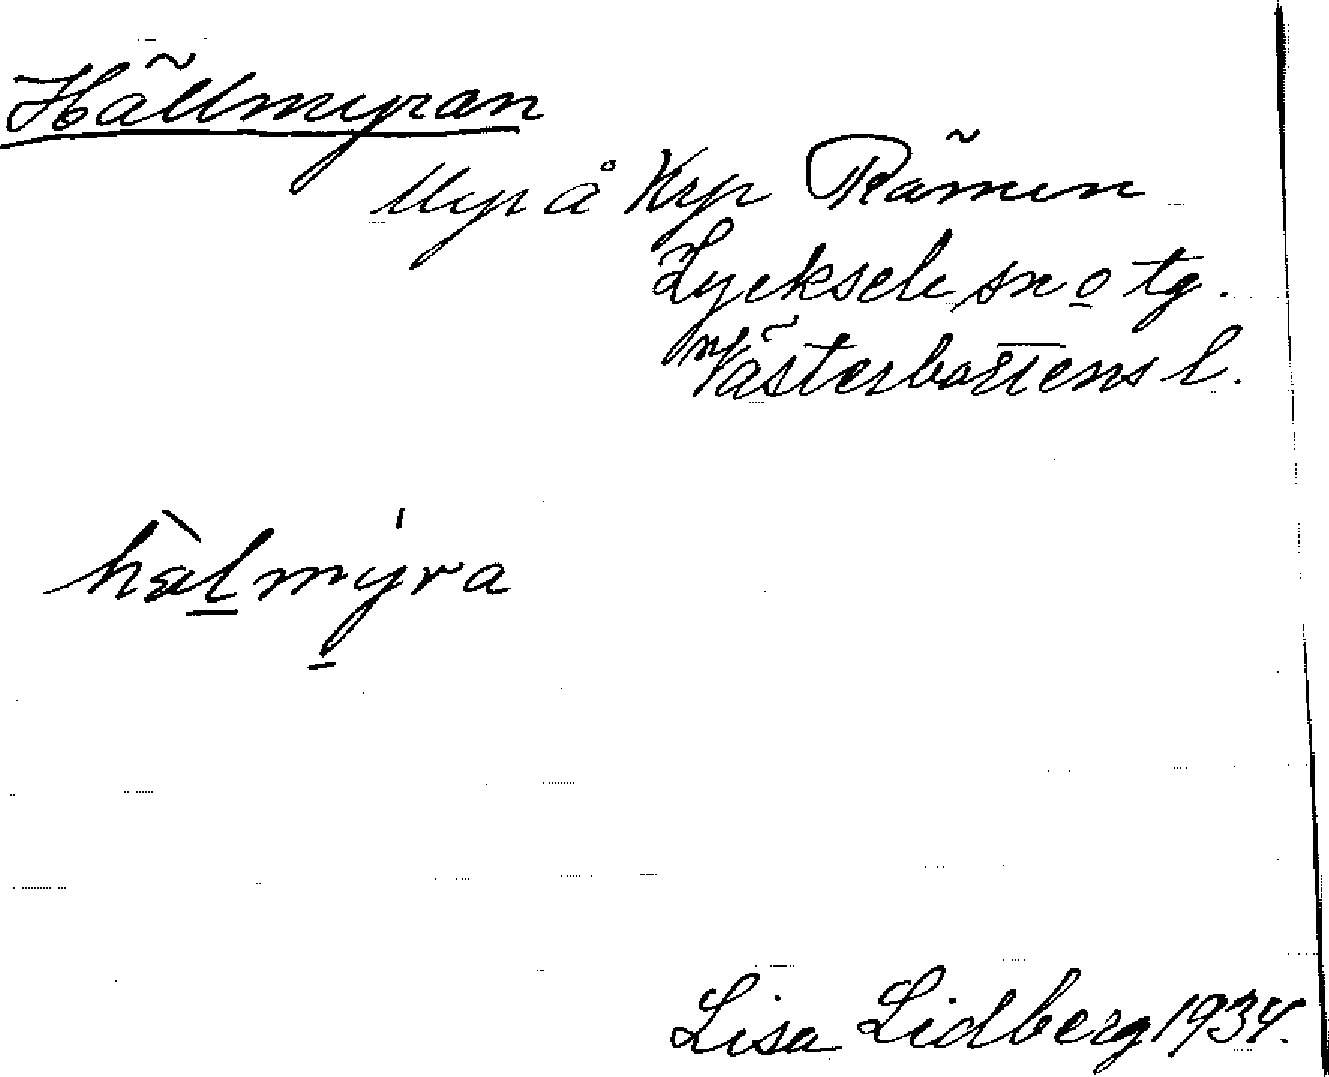 Hällmyran
Myr å Krp Rämen
Lycksele sn o tg.
Västerbottens l.
hälmyra
Lisa Lidberg 1934.